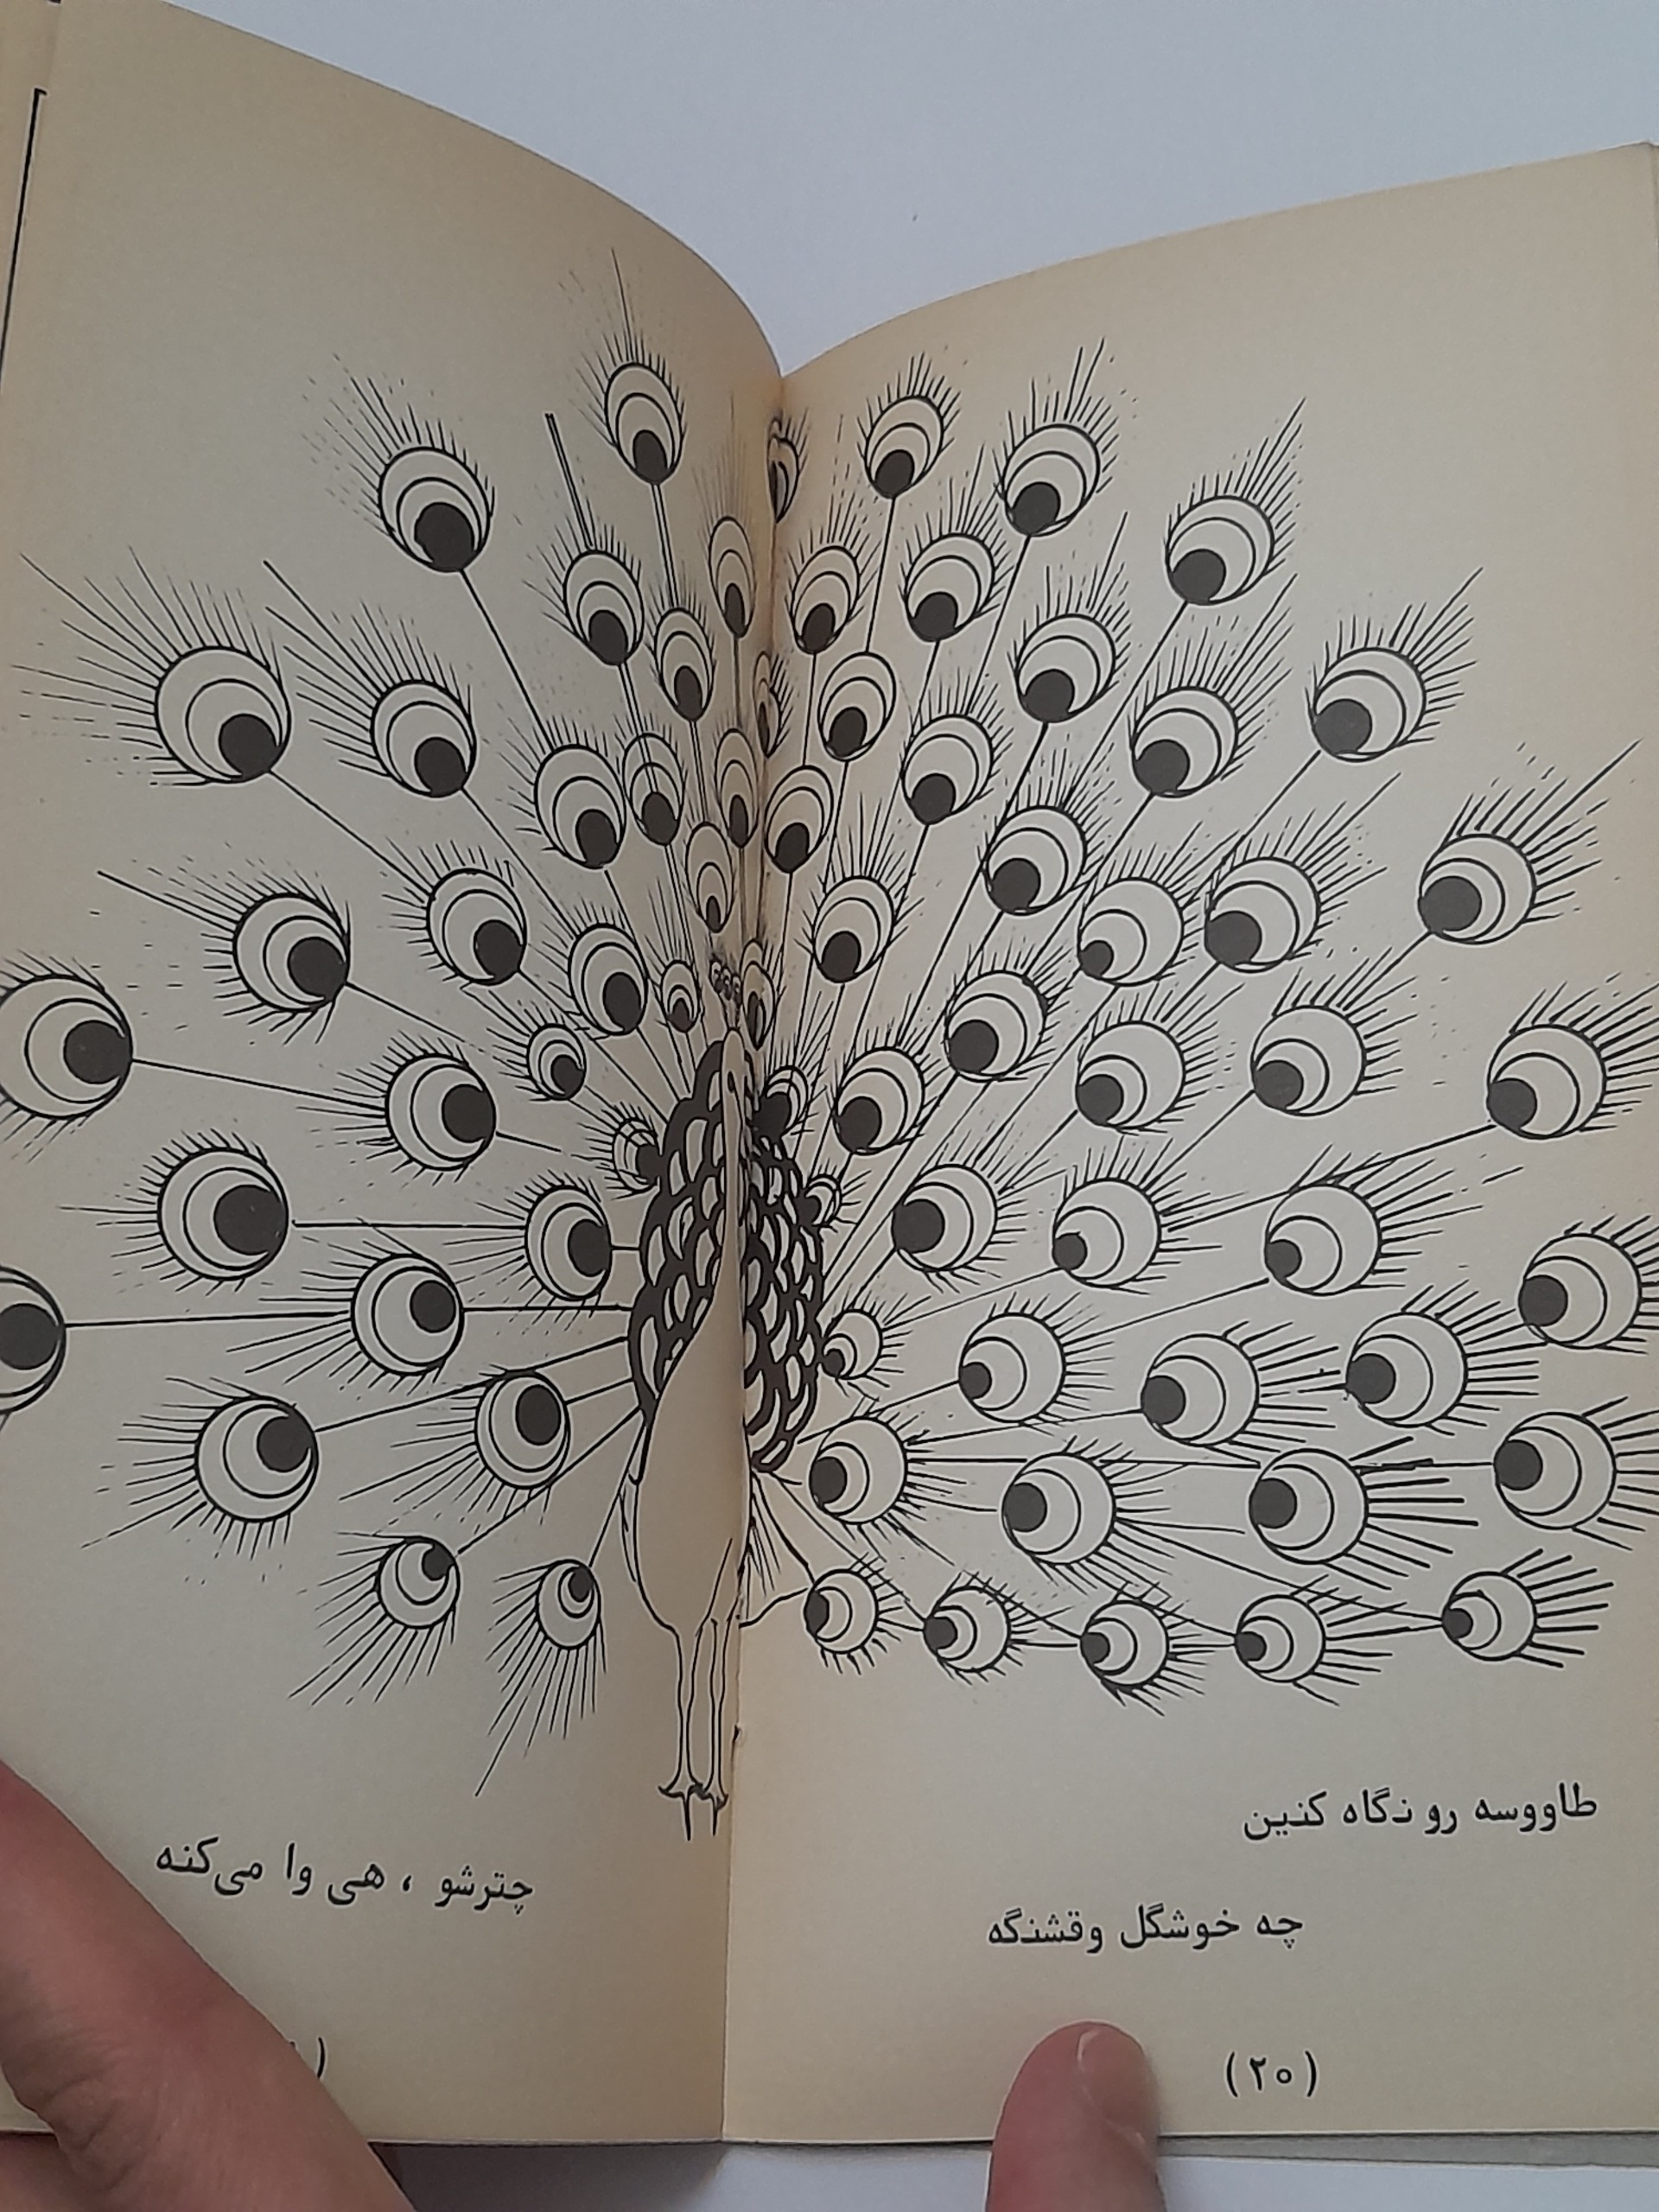 طاووسه رو نگاه کنین
چه خوشگل و قشنگه
(۲۰)
چترشو ، هی وا می‌کنه